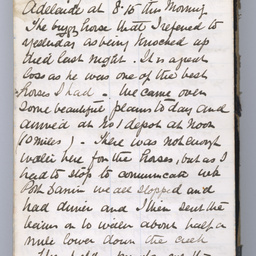 Adelaide at 8.15 this morning
The buggy horse that I referred to
yesterday as being knocked up
died last night. It is a great
loss as he was one of the best
horses I had. We came over
some beautiful plains to day and
arrived at No 1 depot at noon
(10 miles). There was not enough
water here for the horses, but as I
had to stop to communicate with
Port Darwin we all stopped and
had dinner and I then sent the
teams on to water about half a
mile lower down the creek